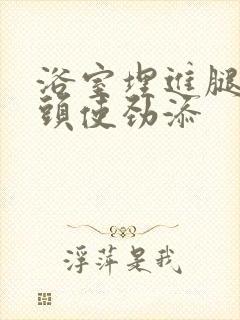 浴室埋進腿
頭使劲添
浮萍是我